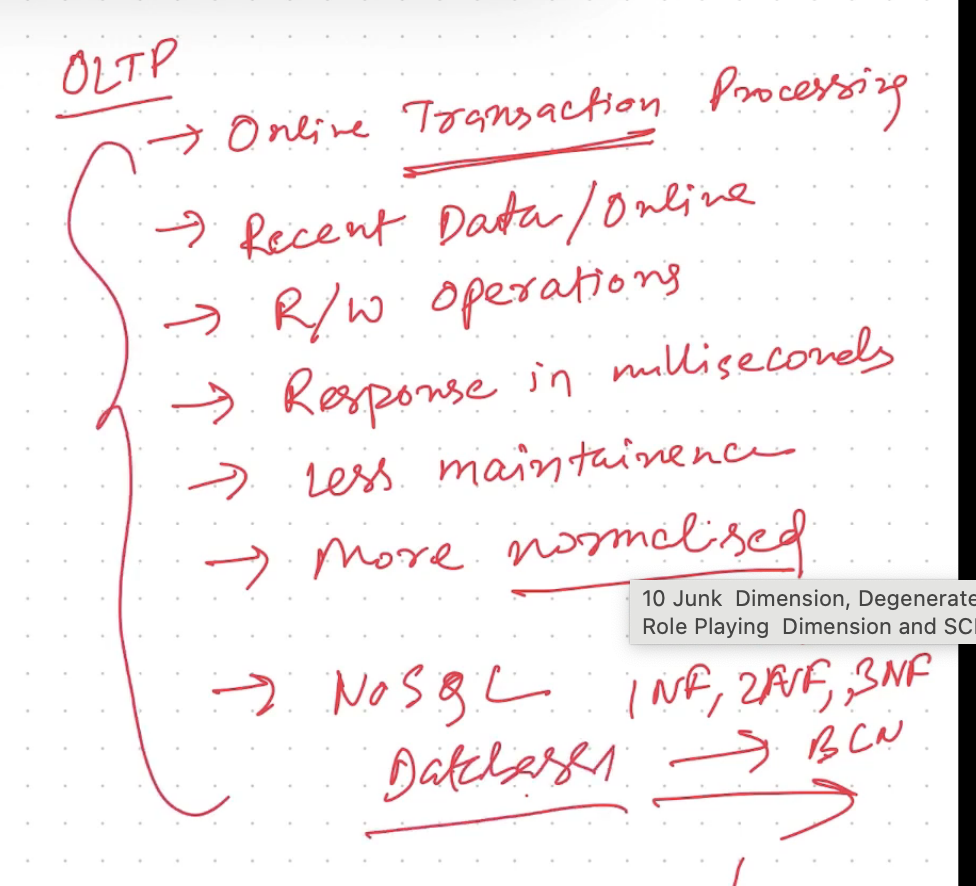 OLTP
→ Online Transaction Processing
→ Recent Data/Online
→ R/W operations
→ Response in milliseconds
→ Less maintainence
→ More normalised
10 Junk Dimension, Degenerate
Role Playing Dimension and SC
→ NoSQL 1NF, 2NF, 3NF
Databases → BCN